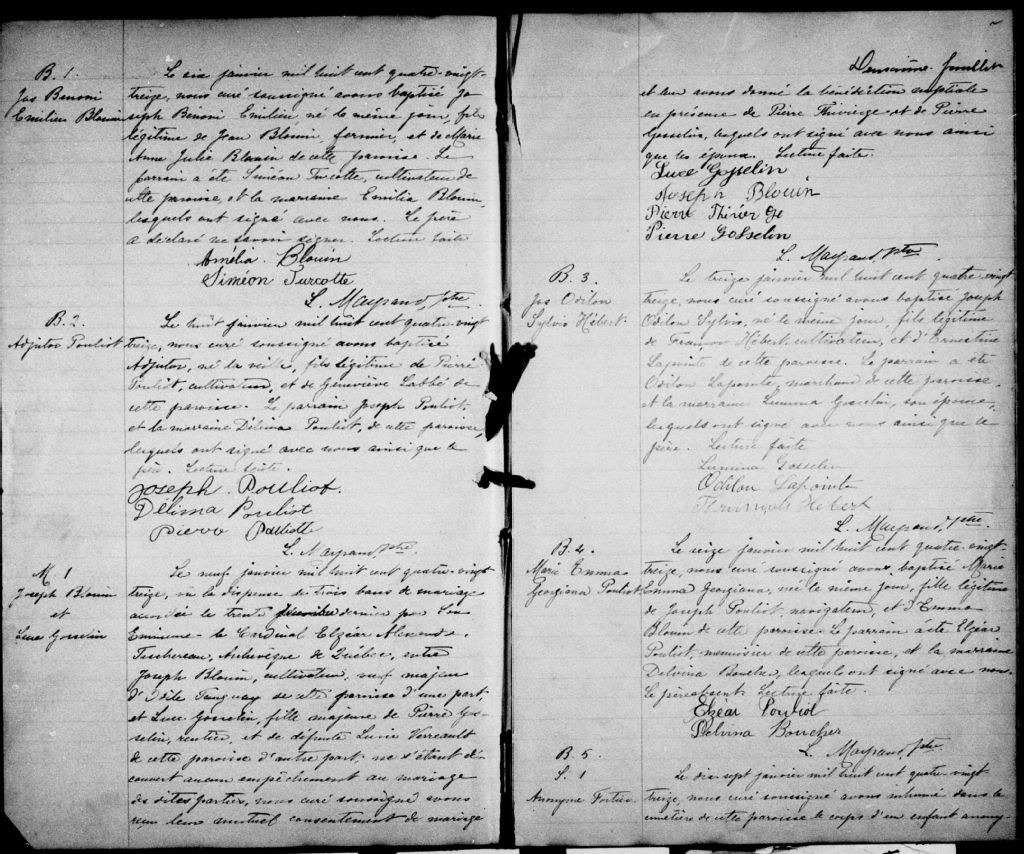 B. 1.
Jos Benoni
Emilien Blouin
Le six janvier mil huit cent quatre-vingt-
treize, nous curé soussigné avons baptisé Jo
seph Benoni Emilien, né le même jour, fils
légitime de Jean Blouin, fermier, et de Marie
Anne Julie Blouin de cette paroisse. Le
parrain a été Siméon Turcotte, cultivateur de
cette paroisse, et la marraine Emilia Blouin,
lesquels ont signé avec nous. Le père
a déclaré ne savoir signer. Lecture faite
Amélia Blouin
Siméon Turcotte
L. Mayrand, ptre
B. 2.
Adjutor Pouliot
Le huit janvier mil huit cent quatre-vingt
treize, nous curé soussigné avons baptisé
Adjutor, né la veille, fils légitime de Pierre
Pouliot, cultivateur, et de Geneviève Labbé de
cette paroisse. Le parrain Joseph Pouliot,
et la marraine Délima Pouliot, de cette paroisse,
lesquels ont signé avec nous ainsi que le
père. Lecture faite.
Joseph Pouliot.
Délima Pouliot
Pierre Pouliotte
L. Mayrand, ptre.
M. 1
Joseph Blouin
et
Luce Gosselin
Le neuf janvier mil huit cent quatre-vingt
treize, vu la dispense de trois bans de mariage
accordée le trente dernier par Son
Eminence le Cardinal Elzéar Alexandre
Taschereau, Archevêque de Québec, entre
Joseph Blouin, cultivateur, veuf majeur
d'Odile Tanguay de cette paroisse d'une part
et Luce Gosselin, fille majeure de Pierre Gos-
selin, rentier, et de défunte Lucie Verreault
de cette paroisse d'autre part, ne s'étant dé-
couvert aucun empêchement au mariage
des dites parties, nous curé soussigné avons
reçu leur mutuel consentement de mariage
Deuxième feuillet
et leur avons donné la bénédiction nuptiale
en présence de Pierre Thivierge et de Pierre
Gosselin, lesquels ont signé avec nous ainsi
que les époux. Lecture faite.
Luce Gosselin
Joseph Blouin
Pierre Thivierge
Pierre Gosselin
L. Mayrand, ptre
B. 3.
Jos Odilon
Sylvio Hébert
Le treize janvier mil huit cent quatre-vingt
treize, nous curé soussigné avons baptisé Joseph
Odilon Sylvio, né le même jour, fils légitime
de Hébert, cultivateur, et d'Ernestine
Lapointe de cette paroisse. Le parrain a été
Odilon Lapointe, marchand de cette paroisse,
et la marraine Lumina Gosselin, son épouse,
lesquels ont signé avec nous ainsi que le
père. Lecture faite
Lumina Gosselin
Odilon Lapointe
Hébert
L. Mayrand, ptre.
B. 4.
Marie Emma
Georgiana Pouliot
Le seize janvier mil huit cent quatre-vingt-
treize, nous curé soussigné avons baptisé Marie
Emma Georgiana, née le même jour, fille légitime
de Joseph Pouliot, navigateur, et d'Emma
Blouin de cette paroisse. Le parrain a été Elzéar
Pouliot, menuisier de cette paroisse, et la marraine
Delvina Boucher, lesquels ont signé avec nous.
Le père absent. Lecture faite.
Elzéar Pouliot
Delvina Boucher
L. Mayrand, ptre
B. 5
S. 1
Anonyme Fortier
Le dix-sept janvier mil huit cent quatre-vingt
treize, nous curé soussigné avons inhumé dans le
cimetière de cette paroisse le corps d'un enfant anony-